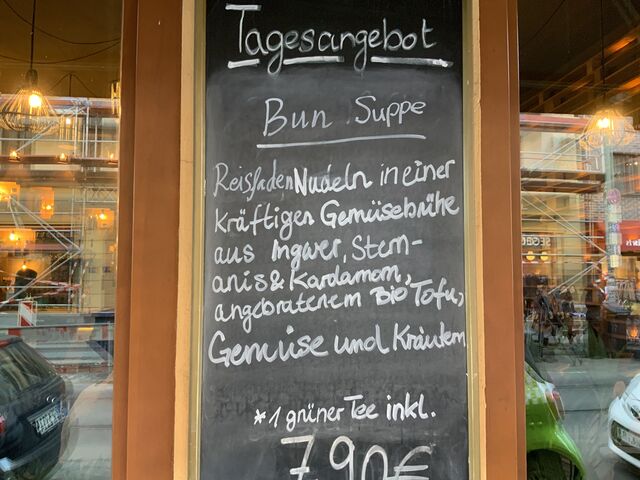 Tagesangebot
Bun Suppe
Reisfaden Nudeln in einer
kräftigen Gemüsebrühe
aus Ingwer, Stern-
anis & Kardamom,
angebratenem Bio Tofu,
Gemüse und Kräutern
*1 grüner Tee inkl.
7,90€